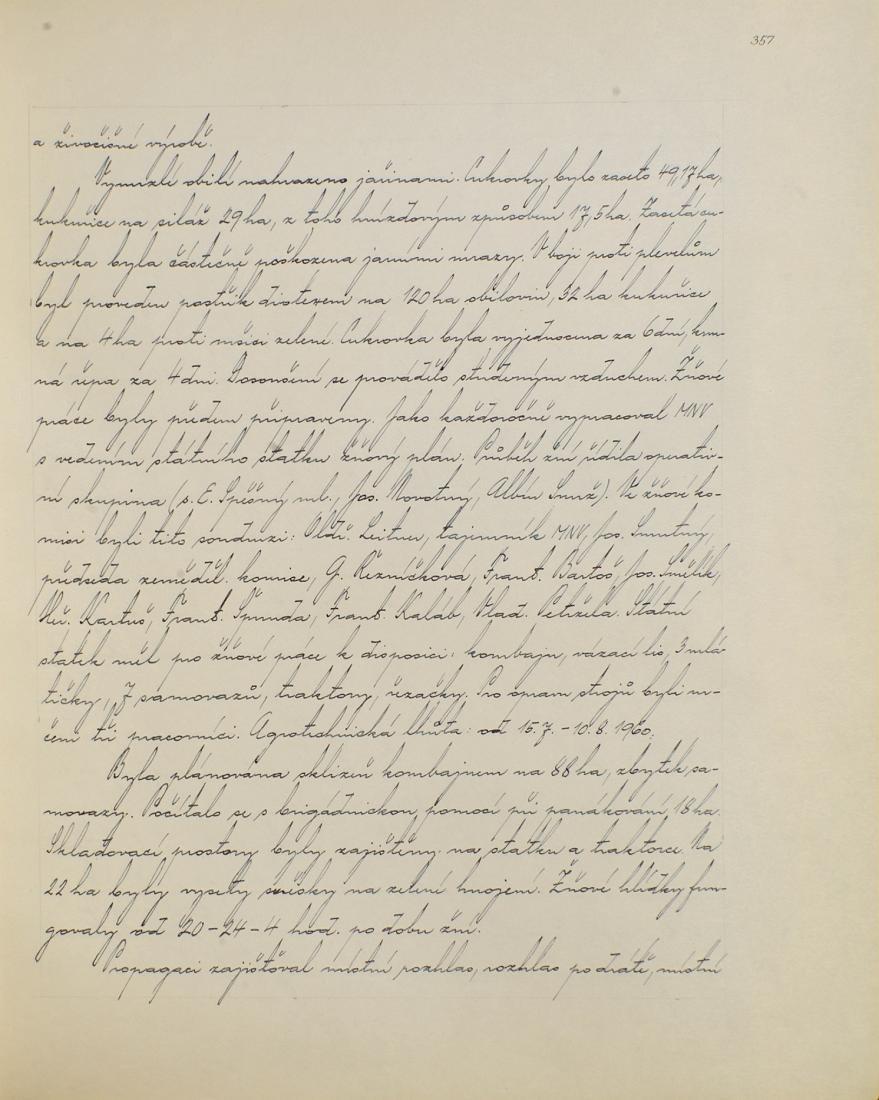 357
a živočišné výrobě.
Vymrzlé obilí nahrazeno jařinami. Cukrovky bylo zaseto 49,17 ha,
kukuřice na siláž 29 ha, z toho hnízdovým způsobem 17,5 ha. Zasetá cu-
krovka byla částečně poškozena jarními mrazy. V boji proti plevelům
byl proveden postřik dicotexem na 120 ha obilovin, 32 ha kukuřice
a na 4 ha proti mšici zelené. Cukrovka byla vyjednocena za 6 dní, krm-
ná řepa za 4 dni. Dosoušení se provádělo studeným vzduchem. Žňové
práce byly předem připraveny. Jako každoročně vypracoval MNV
s vedením státního statku žňový plán. Průběh žní řídila operativ-
ní skupina (s. E. Spěšný ml., Jos. Novotný, Albín Smrž). Ve žňové ko-
misi byli tito soudruzi: Oldř. Leitner, tajemník MNV, Jos. Smutný,
předseda zeměděl. komise, G. Řezníčková, Frant. Bartoš, Jos. Smělík,
Kartus, Frant. Špunda, Frant. Kaláb, Vlad. Petržela. Státní
statek měl pro žňové práce k disposici: kombajn, vázací lis, 3 mlá-
tičky, 7 samovazů, traktory, řezačky. Pro opravu strojů byli ur-
čeni tři pracovníci. Agrotechnická lhůta: od 15.7. – 10.8. 1960.
Byla plánována sklizeň kombajnem na 88 ha, zbytek sa-
movazy. Počítalo se s brigádnickou pomocí při panákování 18 ha.
Skladovací prostory byly zajištěny na statku a traktorce. Na
22 ha byly vysety směsky na zelené hnojení. Žňové hlídky fun-
govaly od 20 – 24 – 4 hod. po dobu žní.
Propagaci zajišťoval místní rozhlas, rozhlas po drátě, místní